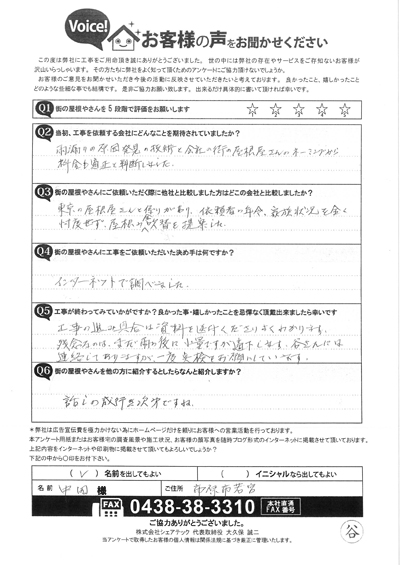 Voice!
お客様の声をお聞かせください
この度は弊社に工事をご用命頂き誠にありがとうございました。世の中には弊社の存在やサービスをご存知ないお客様が
沢山いらっしゃいます。その方たちに弊社をよく知って頂くためのアンケートにご協力頂けないでしょうか。
お客様のご意見をお聞かせいただき今後の活動に反映させていただきたいと考えております。良かったこと、嬉しかったこと
どのような些細な事でも結構です。是非ご協力お願い致します。出来るだけ具体的に書いて頂ければ幸いです。
Q1 街の屋根やさんを5段階で評価をお願いします ☆ ☆ ☆ ☆ ☆
Q2 当初、工事を依頼する会社にどんなことを期待されていましたか?
雨漏りの原因発見の技術と会社の街の屋根屋さんのホームページから
料金も適正と判断しました。
Q3 街の屋根やさんにご依頼いただく際に他社と比較しました方はどこの会社と比較しましたか?
東京の屋根屋さんと
依頼者の年令、家族状況を全く
忖度せず、屋根の 替を提案した。
Q4 街の屋根やさんに工事をご依頼いただいた決め手は何ですか?
インターネットで調べました。
Q5 工事が終わってみていかがですか?良かった事・嬉しかったことを忌憚なく頂戴出来ましたら幸いです
工事の進み具合は資料を送付くださりよくわかります。
残念なのは、まだ雨の後に少量ですが滴下します。谷さんには
連絡してありますが、一度点検をお願いしています。
Q6 街の屋根やさんを他の方に紹介するとしたらなんと紹介しますか?
話しの成行き次第ですね。
*弊社は広告宣伝費を極力かけない為にホームページだけを頼りにお客様への営業活動を行っております。
本アンケート用紙またはお客様宅の調査風景や施工状況、お客様の顔写真を随時ブログ形式のインターネットに掲載させて頂いております。
上記内容をインターネットや印刷物に掲載させて頂いてもよろしいでしょうか?
下記の中から〇印をお付け下さい。
(✓)名前を出してもよい ( )イニシャルなら出してもよい
名前 中田 様 ご住所 市原市若宮
FAX 0438-38-3310 本社直通 FAX番号
ご協力ありがとうございました。
株式会社シェアテック 代表取締役 大久保 誠二
当アンケートで取得したお客様の個人情報は関係法規に基づき厳正に管理いたします。
谷